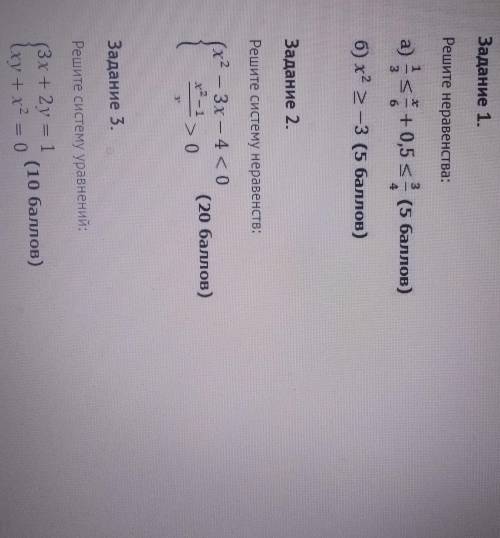 Задание 1.
Решите неравенства:
а) 1/3 ≤ x/6 + 0,5 ≤ 3/4 (5 баллов)
б) x² ≥ −3 (5 баллов)
Задание 2.
Решите систему неравенств:
{x² − 3x − 4 < 0
{(x² − 1)/x > 0 (20 баллов)
Задание 3.
Решите систему уравнений:
{3x + 2y = 1
{xy + x² = 0 (10 баллов)